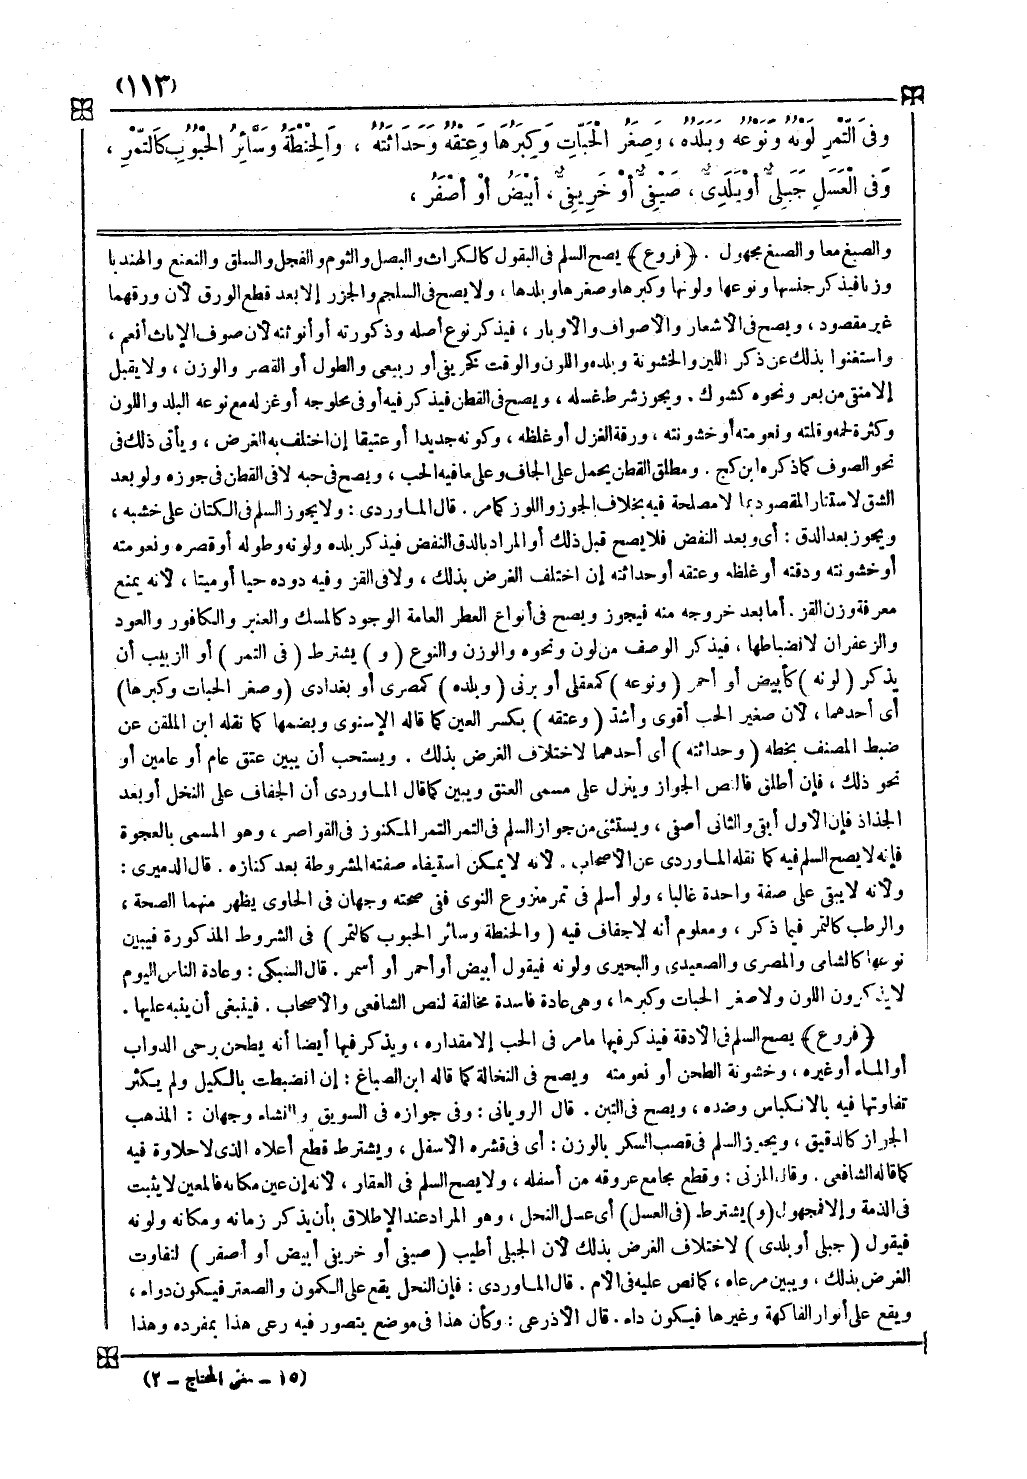 (١١٣)
وَفِي التَّمْرِ لَوْنُهُ وَنَوْعُهُ وَبَلَدُهُ ، وَصِغَرُ الْحَبَّاتِ وَكِبَرُهَا وَعِتْقُهُ وَحَدَاثَتُهُ ، وَالْحِنْطَةُ وَسَائِرُ الْحُبُوبِ كَالتَّمْرِ ،
وَفِي الْعَسَلِ جَبَلِيٌّ أَوْ بَلَدِيٌّ ، صَيْفِيٌّ أَوْ خَرِيفِيٌّ ، أَبْيَضُ أَوْ أَصْفَرُ ،
والصبغ معا والصبغ مجهول . ﴿ فروع ﴾ يصح السلم فى البقول كالكراث والبصل والثوم والفجل والسلق والنعنع والهندبا
وزنا فيذكر جنسها ونوعها ولونها وكبرها وصغرها وبلدها ، ولا يصح فى السلجم والجزر إلا بعد قطع الورق لأن ورقهما
غير مقصود ، ويصح فى الأشعار والأصواف والأوبار ، فيذكر نوع أصله وذكورته أو أنوثته لأن صوف الإناث أنعم ،
واستغنوا بذلك عن ذكر اللين والخشونة وبلده واللون والوقت كخريفى أو ربيعى والطول أو القصر والوزن ، ولا يقبل
إلا منقى من بعر ونحوه كشوك . ويجوز شرط غسله ، ويصح فى القطن فيذكر فيه أو فى محلوجه أو غزله مع نوعه البلد واللون
وكثرة لحمه وقلته ونعومته أو خشونته ، ورقة الغزل أو غلظه ، وكونه جديدا أو عتيقا إن اختلف به الغرض ، ويأتى ذلك فى
نحو الصوف كما ذكره ابن كج . ومطلق القطن يحمل على الجاف وعلى ما فيه الحب ، ويصح فى حبه لا فى القطن فى جوزه ولو بعد
الشق لاستتار المقصود بما لا مصلحة فيه بخلاف الجوز واللوز كما مر . قال الماوردى : ولا يجوز السلم فى الكتان على خشبه ،
ويجوز بعد الدق : أى وبعد النفض فلا يصح قبل ذلك أو المراد بالدق النفض فيذكر بلده ولونه وطوله أو قصره ونعومته
أو خشونته ودقته أو غلظه وعتقه أو حداثته إن اختلف الغرض بذلك ، ولا فى القز وفيه دوده حيا أو ميتا ، لأنه يمنع
معرفة وزن القز . أما بعد خروجه منه فيجوز ويصح فى أنواع العطر العامة الوجود كالمسك والعنبر والكافور والعود
والزعفران لانضباطها ، فيذكر الوصف من لون ونحوه والوزن والنوع ( و ) يشترط ( فى التمر ) أو الزبيب أن
يذكر ( لونه ) كأبيض أو أحمر ( ونوعه ) كمعقلى أو برنى ( وبلده ) كمصرى أو بغدادى ( وصغر الحبات وكبرها )
أى أحدهما ، لأن صغير الحب أقوى وأشد ( وعتقه ) بكسر العين كما قاله الإسنوى وبضمها كما نقله ابن الملقن عن
ضبط المصنف بخطه ( وحداثته ) أى أحدهما لاختلاف الغرض بذلك . ويستحب أن يبين عتق عام أو عامين أو
نحو ذلك ، فإن أطلق فالنص الجواز وينزل على مسمى العتق ويبين كما قال الماوردى أن الجفاف على النخل أو بعد
الجذاذ فإن الأول أبقى والثانى أصفى ، ويستثنى من جواز السلم فى التمر التمر المكنوز فى القواصر ، وهو المسمى بالعجوة
فإنه لا يصح السلم فيه كما نقله الماوردى عن الأصحاب . لأنه لا يمكن استيفاء صفته المشروطة بعد كنازه . قال الدميرى :
ولأنه لا يبقى على صفة واحدة غالبا ، ولو أسلم فى تمر منزوع النوى ففى صحته وجهان فى الحاوى يظهر منهما الصحة ،
والرطب كالتمر فيما ذكر ، ومعلوم أنه لا جفاف فيه ( والحنطة وسائر الحبوب كالتمر ) فى الشروط المذكورة فيبين
نوعها كالشامى والمصرى والصعيدى والبحيرى ولونه فيقول أبيض أو أحمر أو أسمر . قال السبكى : وعادة الناس اليوم
لا يذكرون اللون ولا صغر الحبات وكبرها ، وهى عادة فاسدة مخالفة لنص الشافعى والأصحاب . فينبغى أن ينبه عليها .
﴿ فروع ﴾ يصح السلم فى الأدقة فيذكر فيها ما مر فى الحب إلا مقداره ، ويذكر فيها أيضا أنه يطحن برحى الدواب
أو الماء أو غيره ، وخشونة الطحن أو نعومته ويصح فى النخالة كما قاله ابن الصباغ : إن انضبطت بالكيل ولم يكثر
تفاوتها فيه بالانكباس وضده ، ويصح فى التبن . قال الرويانى : وفى جوازه فى السويق والنشاء وجهان : المذهب
الجواز كالدقيق ، ويجوز السلم فى قصب السكر بالوزن : أى فى قشره الأسفل ، ويشترط قطع أعلاه الذى لا حلاوة فيه
كما قاله الشافعى . وقال المزنى : وقطع مجامع عروقه من أسفله ، ولا يصح السلم فى العقار ، لأنه إن عين مكانه فالمعين لا يثبت
فى الذمة وإلا فمجهول (و) يشترط (فى العسل) أى عسل النحل ، وهو المراد عند الإطلاق بأن يذكر زمانه ومكانه ولونه
فيقول ( جبلى أو بلدى ) لاختلاف الغرض بذلك لأن الجبلى أطيب ( صيفى أو خريفى أبيض أو أصفر ) لتفاوت
الغرض بذلك ، ويبين مرعاه ، كما نص عليه فى الأم . قال الماوردى : فإن النحل يقع على الكمون والصعتر فيكون دواء ،
ويقع على أنوار الفاكهة وغيرها فيكون داء . قال الأذرعى : وكأن هذا فى موضع يتصور فيه رعى هذا بمفرده وهذا
(١٥ – مغنى المحتاج – ٢)